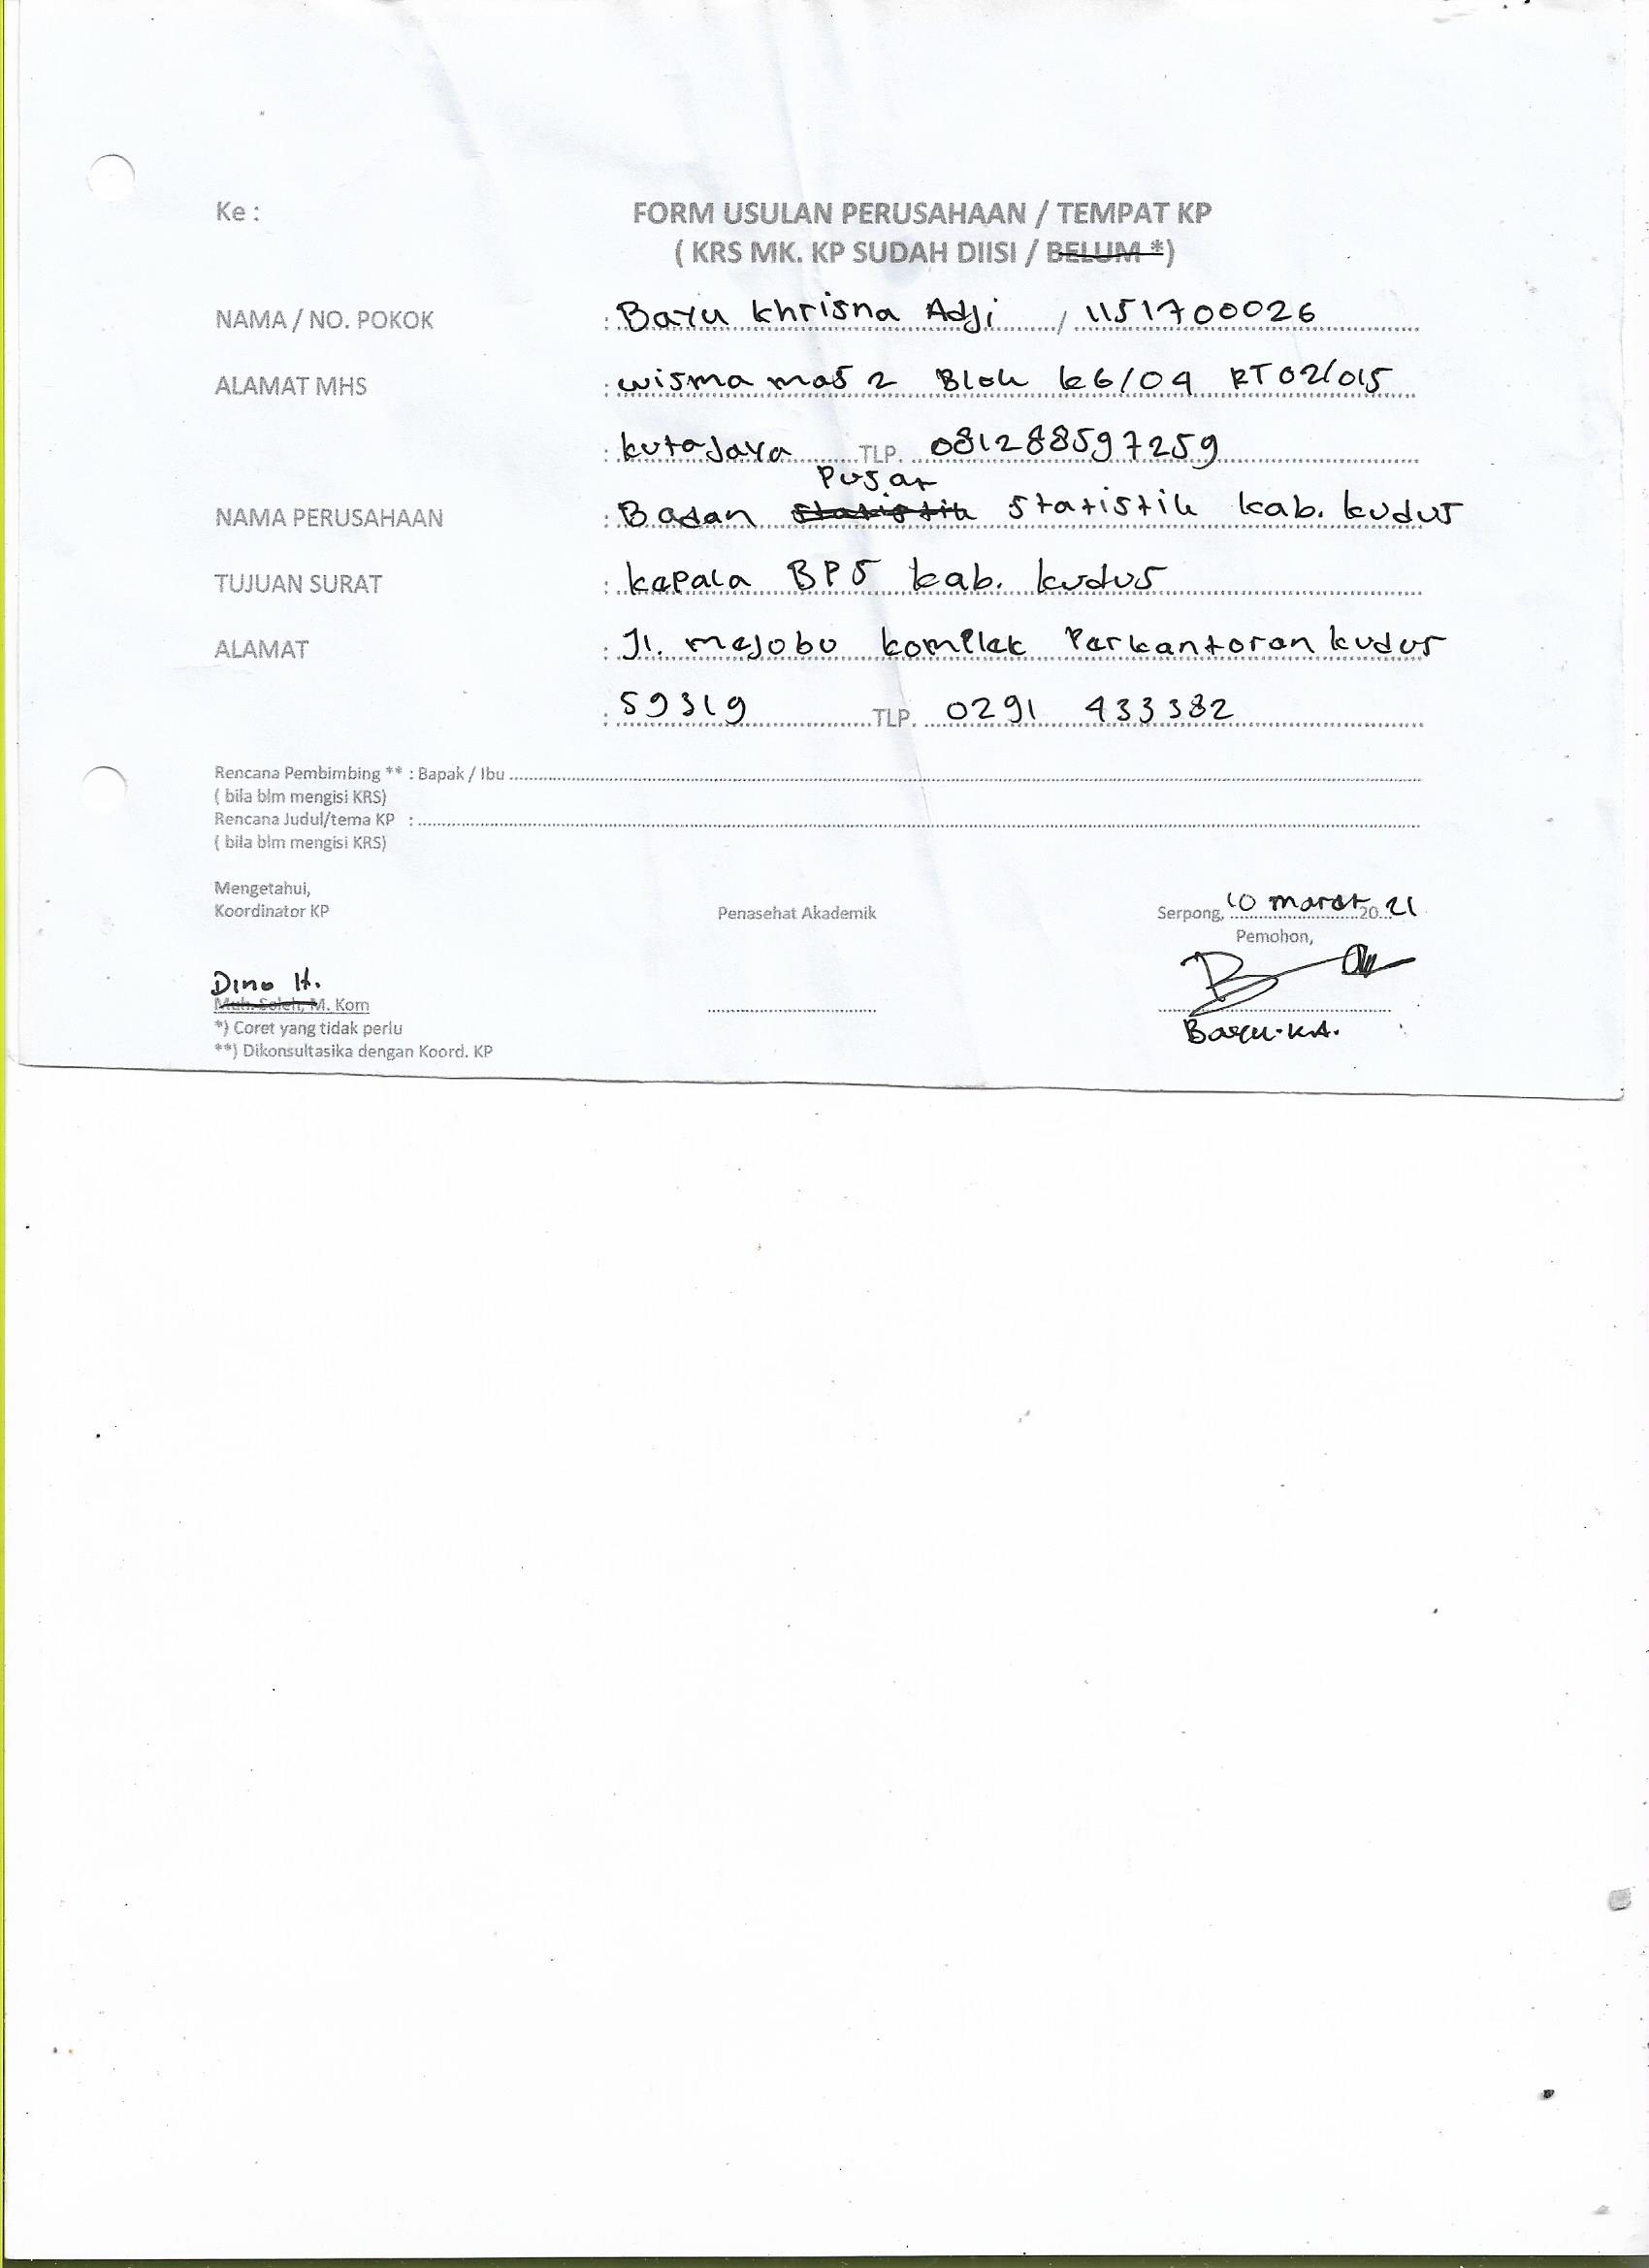 Ke :
FORM USULAN PERUSAHAAN / TEMPAT KP
( KRS MK. KP SUDAH DIISI / BELUM *)
NAMA / NO. POKOK : Bayu Khrisna Adji / 1151700026
ALAMAT MHS : wisma mas 2 Blok k6/04 RT 02/015
: kutajaya TLP. 081288597259
Pusat
NAMA PERUSAHAAN : Badan statistik statistik kab. kudus
TUJUAN SURAT : kepala BPS kab. kudus
ALAMAT : Jl. mejobo komplek Perkantoran kudus
: 59319 TLP. 0291 433382
Rencana Pembimbing ** : Bapak / Ibu
( bila blm mengisi KRS)
Rencana Judul/tema KP :
( bila blm mengisi KRS)
Mengetahui,
Koordinator KP Penasehat Akademik Serpong, 10 maret 20 21
Pemohon,
Dino H.
Muh. Soleh, M. Kom
*) Coret yang tidak perlu Bayu. K.A.
**) Dikonsultasika dengan Koord. KP